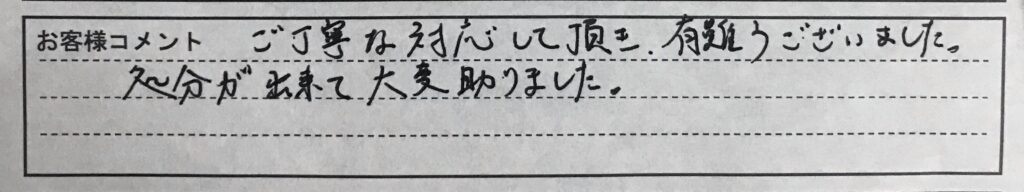 お客様コメント ご丁寧な対応して頂き、有難うございました。
処分が出来て大変助りました。